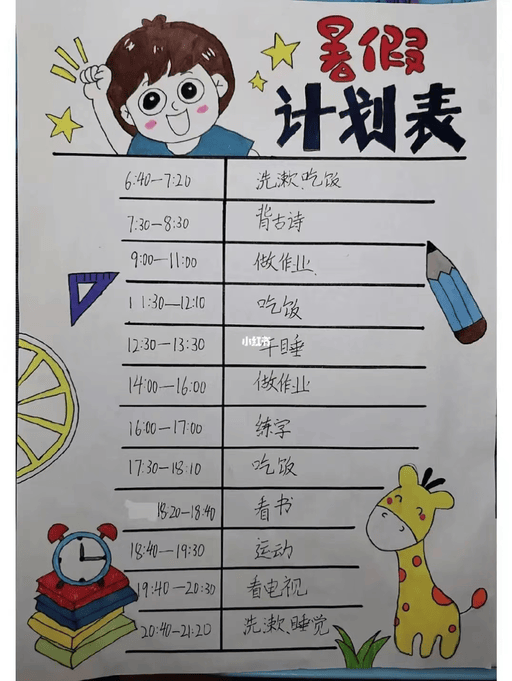 暑假
计划表
6:40—7:20 洗漱、吃饭
7:30—8:30 背古诗
9:00—11:00 做作业
11:30—12:10 吃饭
小红书
12:30—13:30 午睡
14:00—16:00 做作业
16:00—17:00 练字
17:30—18:10 吃饭
18:20—18:40 看书
18:40—19:30 运动
19:40—20:30 看电视
20:40—21:20 洗漱、睡觉